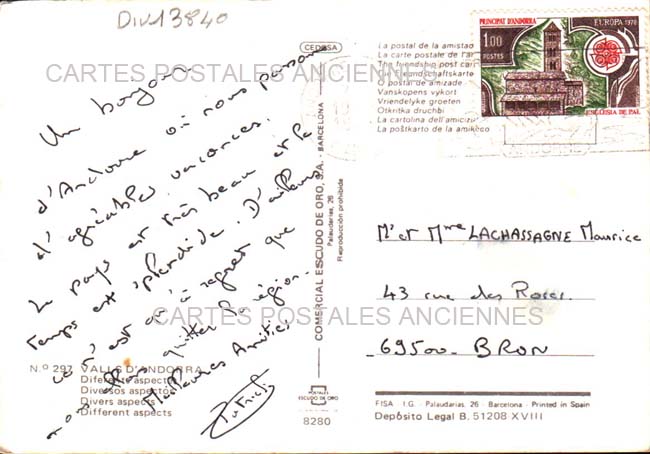 DIV13840
CEDOSA
Un bonjour
d'Andorre où nous passons
d'agréables vacances.
Le pays est très beau et le
temps est splendide. D'ailleurs
c'est à regret que
nous allons quitter la région.
Meilleures Amitiés
Patrick
CARTES POSTALES ANCIENNES
CARTES POSTALES ANCIENNES
N.º 297 VALLS D'ANDORRA
Diferents aspects
Diversos aspectos
Divers aspects
Different aspects
COMERCIAL ESCUDO DE ORO, S.A. - BARCELONA
Palaudarias, 26
Reproducción prohibida
POSTALES
ESCUDO DE ORO
8280
La postal de la amistad
La carte postale de l'am
The friendship post card
landschaftskarte
O postal de amizade
Vanskopens vykort
Vriendelyke groeten
Otkritka druchbi
La cartolina dell'amicizia
La poŝtkarto de la amikeco
PRINCIPAT D'ANDORRA
EUROPA 1978
1.00
POSTES
ESGLESIA DE PAL
Mr et Mme LACHASSAGNE Maurice
43 rue des Roses.
69500. BRON
FISA I.G. - Palaudarias, 26 - Barcelona - Printed in Spain
Depósito Legal B. 51208 XVIII